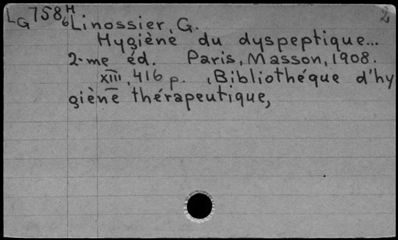 LG 758 H6 Linossier, G. 2
Hygiène du dyspeptique...
2-me éd. Paris, Masson, 1908.
XIII, 416 p. (Bibliothéque d'hy
giène thérapeutique,